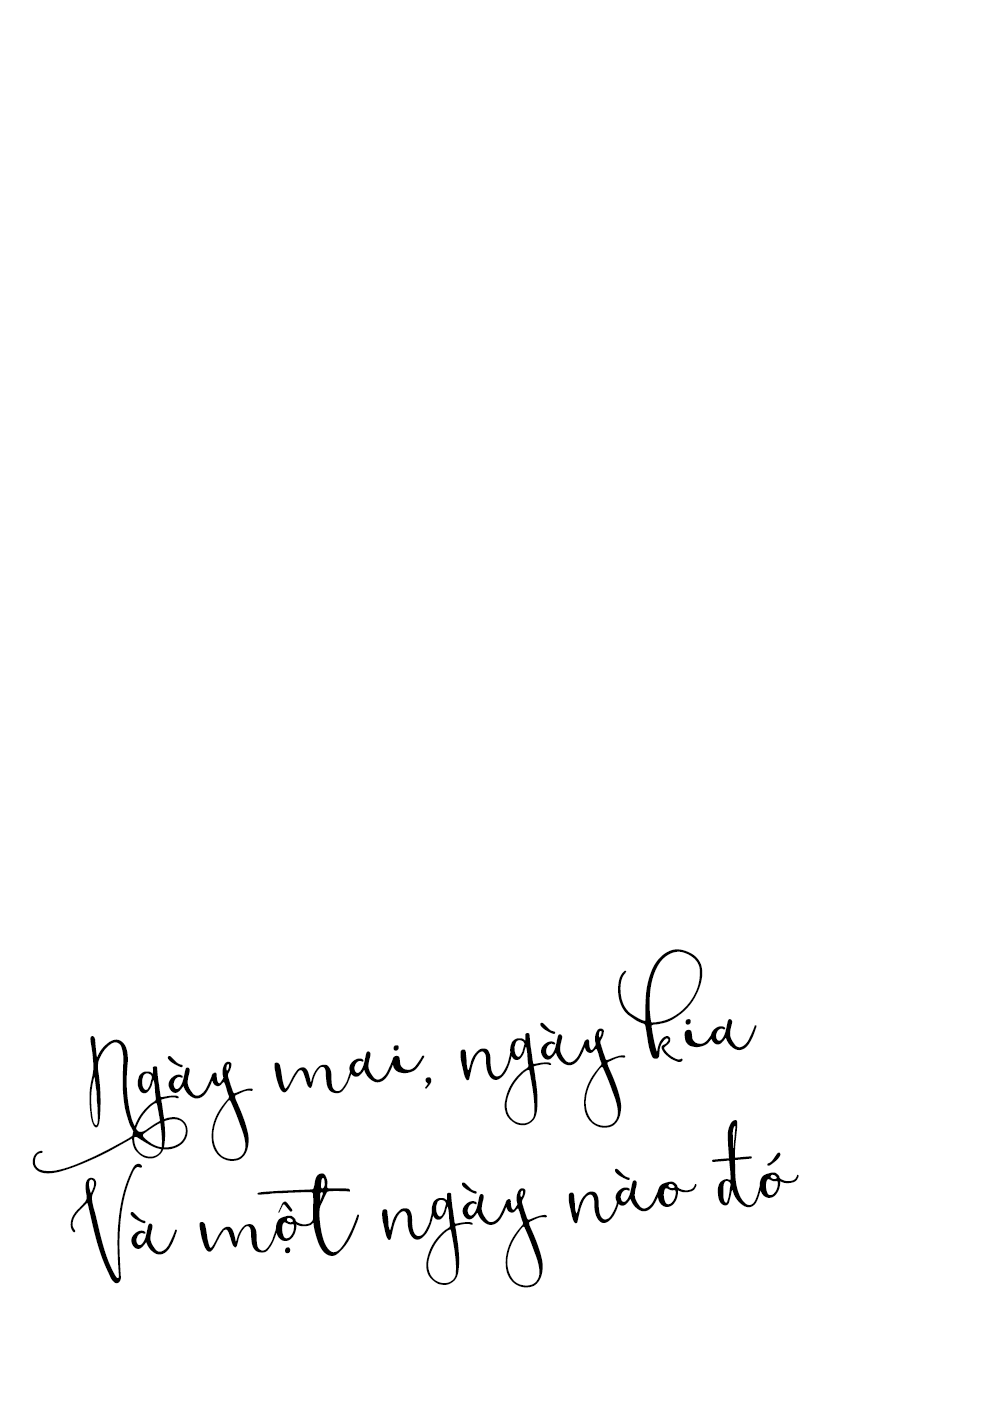 Ngày mai, ngày kia
Và một ngày nào đó